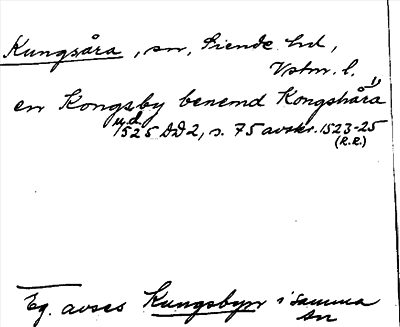 Kungsåra, sn, Siende hd,
Vstm. l.
en Kongsby benemd Kongshåra 1)
u.d. 1525 DD 2, s. 75 avskr. 1523-25
(R.R.)
Eg. avses Kungsbyn i samma
sn